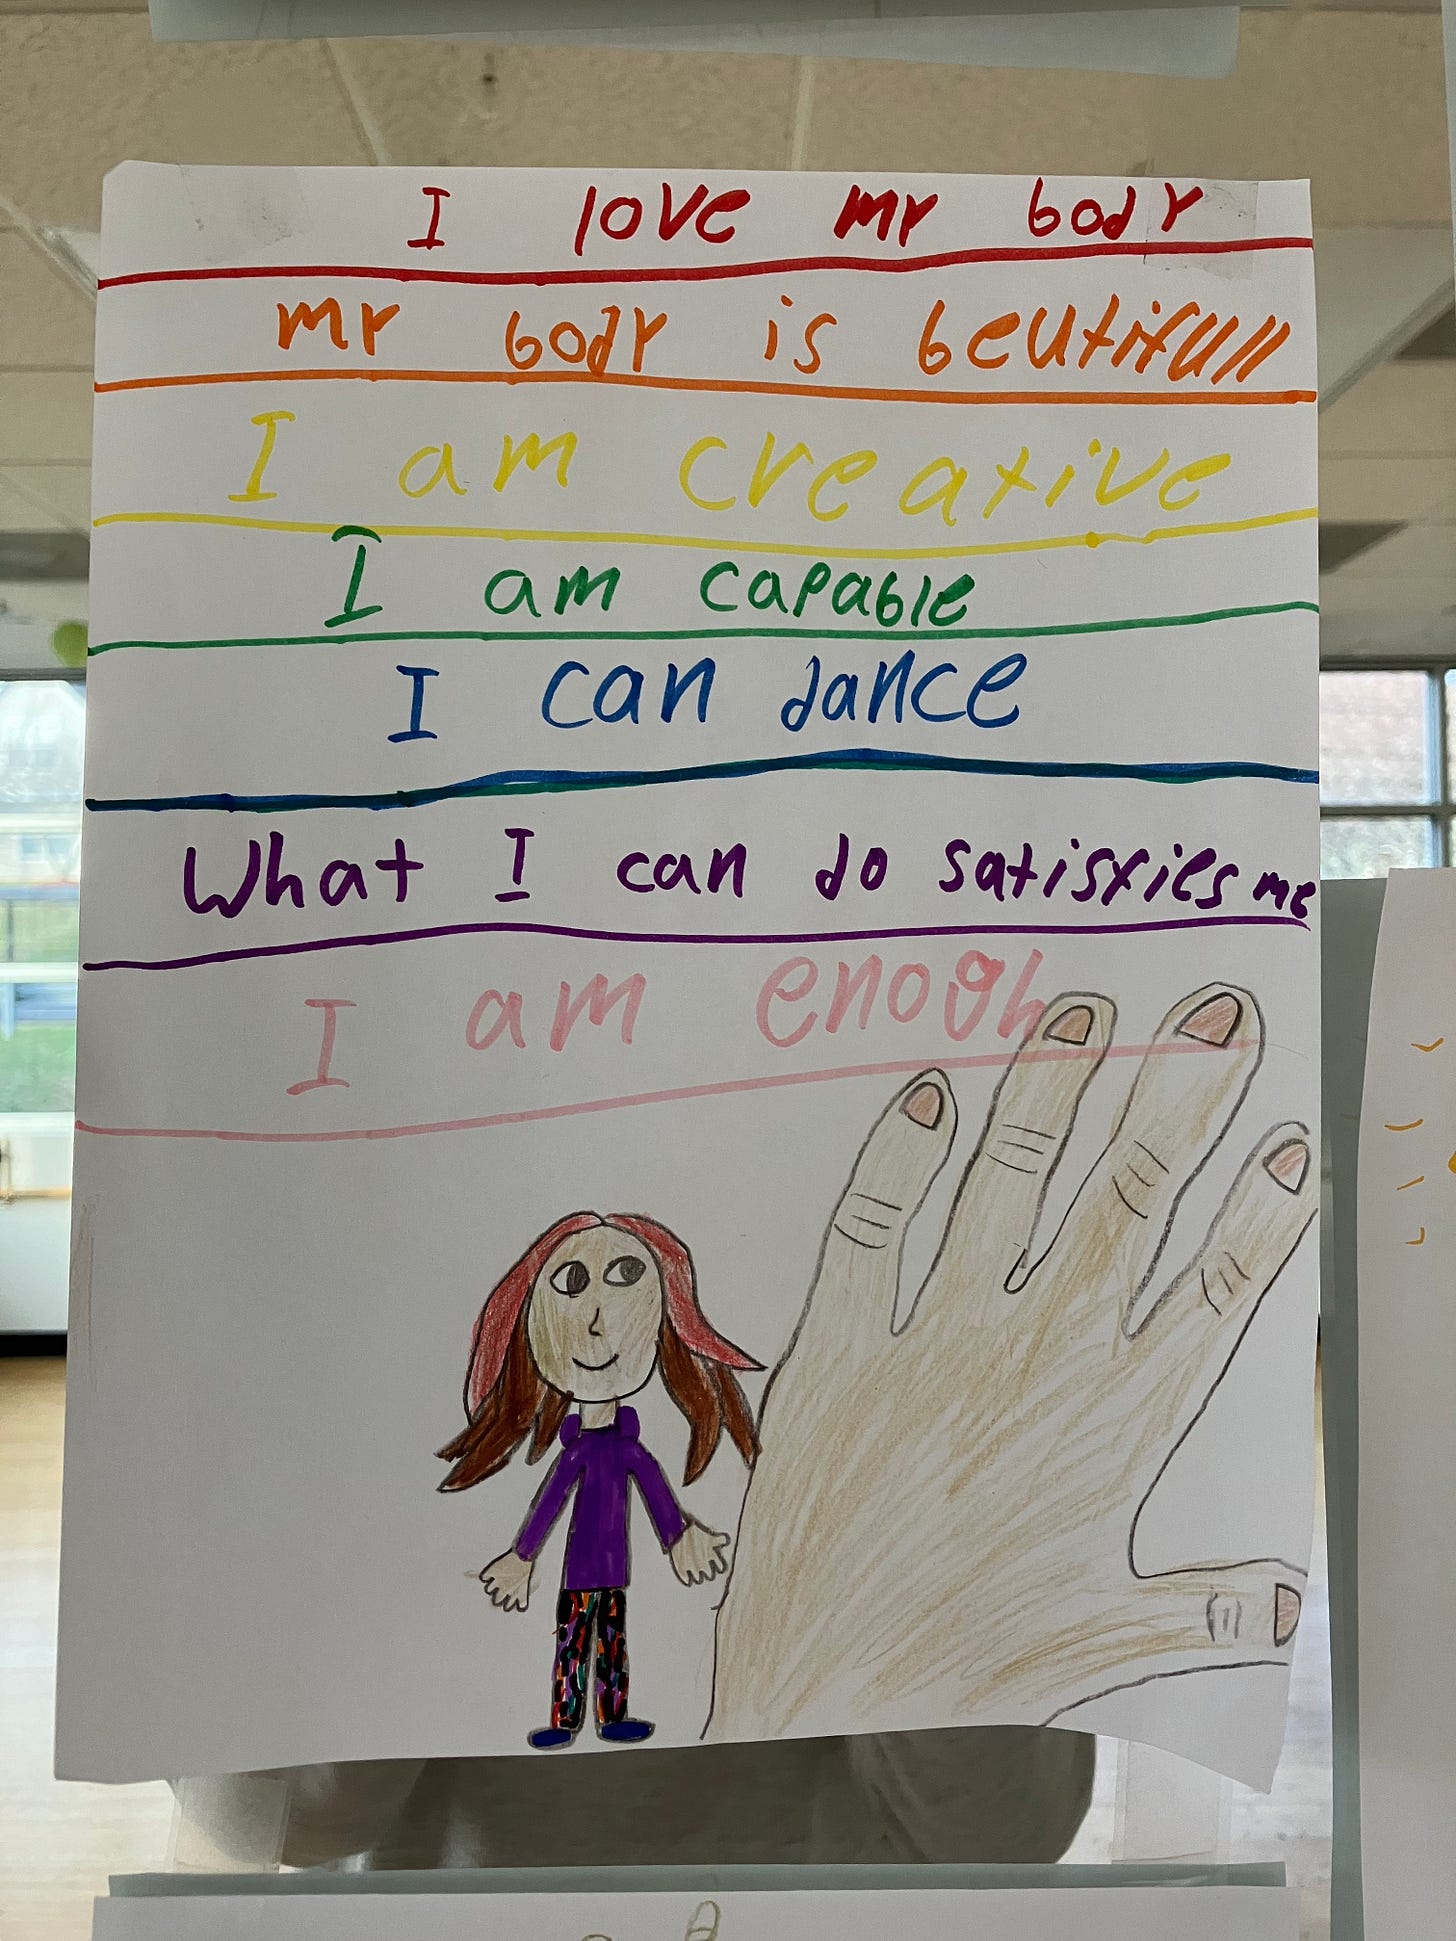 I love my body
my body is beutifull
I am creative
I am capable
I can dance
What I can do satisfies me
I am enogh